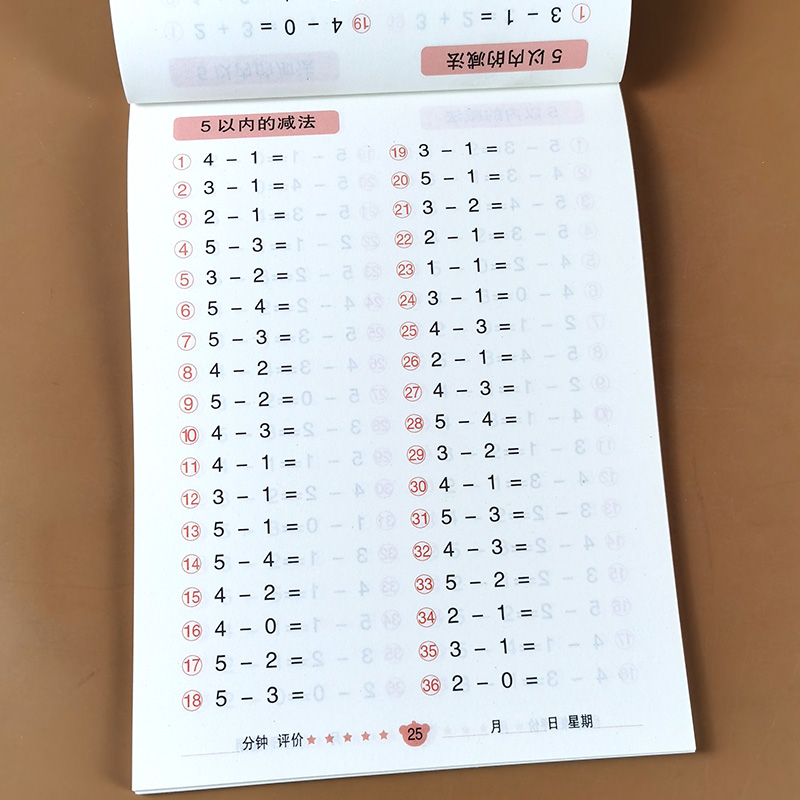 ① 3 - 1 =
⑲ 4 - 0 =
5以内的减法
5以内的减法
① 4 - 1 =
② 3 - 1 =
③ 2 - 1 =
④ 5 - 3 =
⑤ 3 - 2 =
⑥ 5 - 4 =
⑦ 5 - 3 =
⑧ 4 - 2 =
⑨ 5 - 2 =
⑩ 4 - 3 =
⑪ 4 - 1 =
⑫ 3 - 1 =
⑬ 5 - 1 =
⑭ 5 - 4 =
⑮ 4 - 2 =
⑯ 4 - 0 =
⑰ 5 - 2 =
⑱ 5 - 3 =
⑲ 3 - 1 =
⑳ 5 - 1 =
㉑ 3 - 2 =
㉒ 2 - 1 =
㉓ 1 - 1 =
㉔ 3 - 1 =
㉕ 4 - 3 =
㉖ 2 - 1 =
㉗ 4 - 3 =
㉘ 5 - 4 =
㉙ 3 - 2 =
㉚ 4 - 1 =
㉛ 5 - 3 =
㉜ 4 - 3 =
㉝ 5 - 2 =
㉞ 2 - 1 =
㉟ 3 - 1 =
㊱ 2 - 0 =
分钟 评价★★★★★ 25 月 日 星期